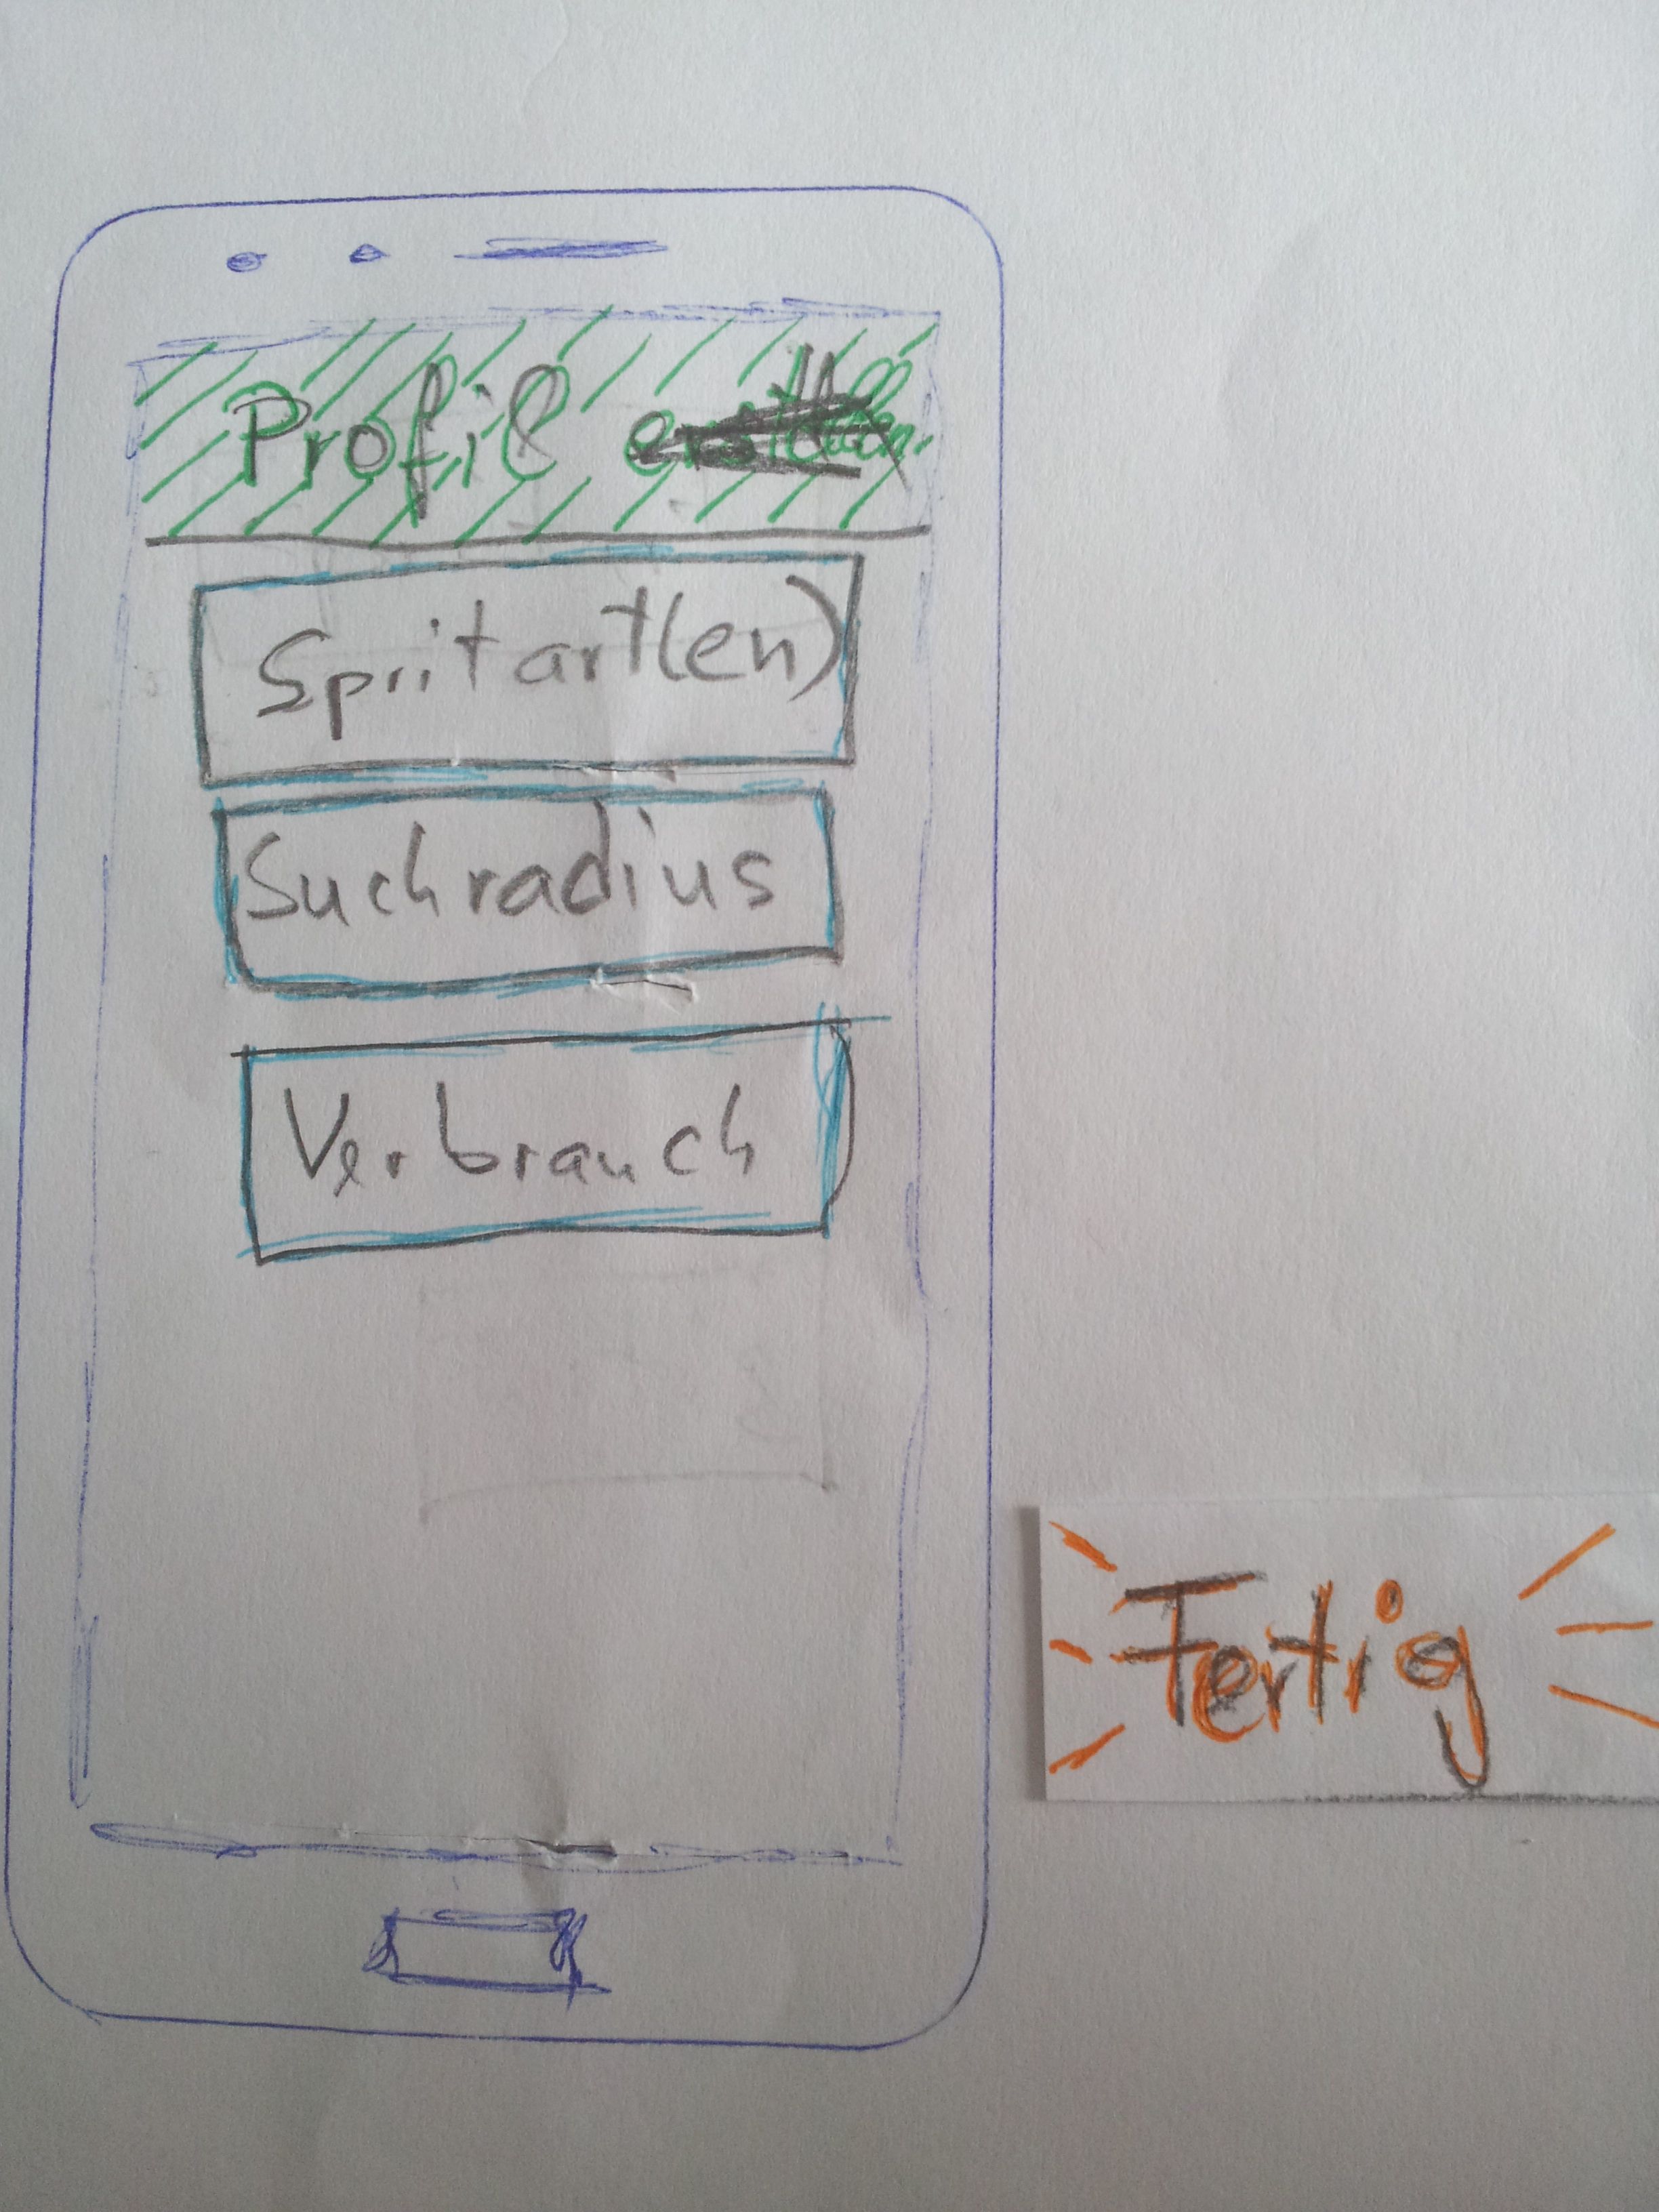 Profil erstellen
Spritart(en)
Suchradius
Verbrauch
Fertig